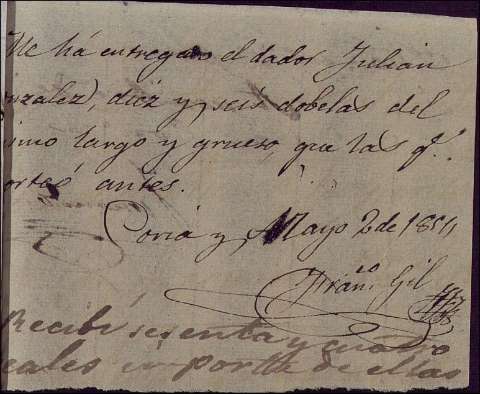 Me há entregado el dador Julian
onzalez, diéz y seis dobelas del
ismo largo y grueso, que las q.e
orteó antes.
Coria y Mayo 2 de 1854
Fran.co Gil
Recibi sesenta y cuatro
eales importe de ellas